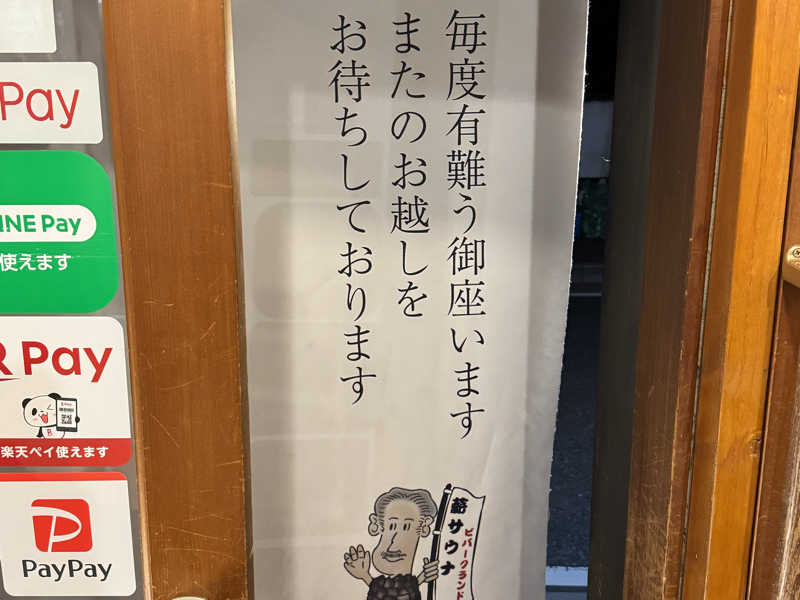 毎度有難う御座います
またのお越しを
お待ちしております
Pay
INE Pay
使えます
R Pay
楽天ペイ使えます
PayPay
サウナ
ビバークランド